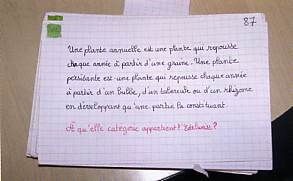 87
Une plante annuelle est une plante qui repousse
chaque année à partir d'une graine. Une plante
persistante est une plante qui repousse chaque année
à partir d'un bulbe, d'un tubercule ou d'un rhizome
en développant qu'une partie la constituant.
A qu'elle catégorie appartient l'Edelweiss ?